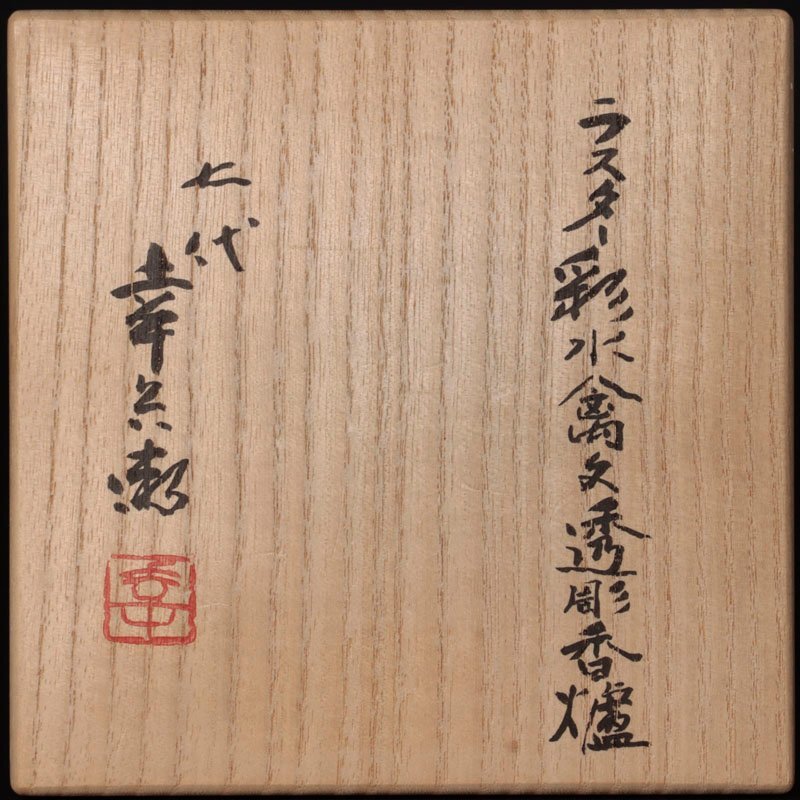 ラスター彩水禽文透彫香爐
七代
幸兵衛